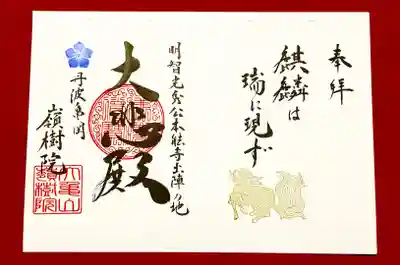 奉拝
麒麟は
瑞に現ず
明智光秀公本能寺出陣の地
大悲殿
丹波亀岡
嶺樹院
大亀山
嶺樹院